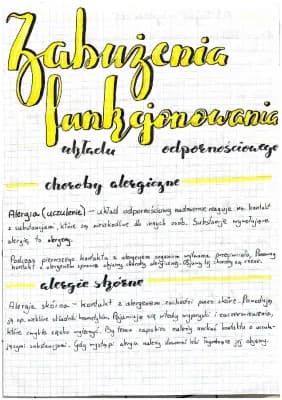 Zabużenia
funkcjonowania
układu odpornościowego
choroby alergiczne
Alergia (uczulenie) – układ odpornościowy nadmiernie reaguje na kontakt
z substancjami, które są nieszkodliwe do innych osób. Substancje wywołujące
alergię to alergeny.
Podczas pierwszego kontaktu z alergenem organizm wytwarza przeciwciała. Ponowny
kontakt z alergenem sprawia objawy choroby alergicznej. Objawy tej choroby są różne.
alergie skórne
Alergia skórna – kontakt z alergenem zachodzi przez skórę. Powodują
ją np. niektóre składniki kosmetyków. Pojawiają się wtedy wypryski i zaczerwienienia,
które zwykle ciężko wyleczyć. By temu zapobiec należy unikać kontaktu z uczula-
jącymi substancjami. Gdy wystąpi alergia należy stosować leki łagodzące jej objawy.